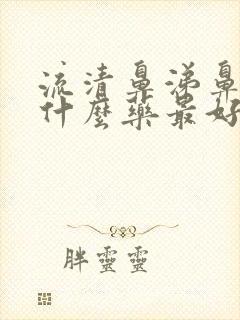 流清鼻涕鼻
什麼藥最好
胖靈靈